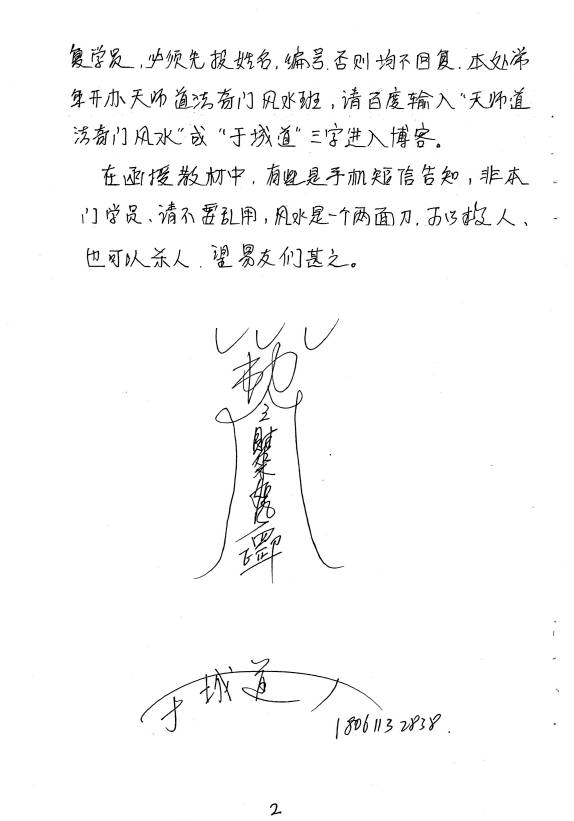 复学员，必须先报姓名，编号.否则均不回复.本处常
年开办天师道法奇门风水班，请百度输入“天师道
法奇门风水”或“于城道”三字进入博客。
在函授教材中.有些是手机短信告知，非本
门学员、请不要乱用，风水是一个两面刀.可以救人、
也可以杀人.望易友们甚之。
勅
于城道人
18061132838.
2